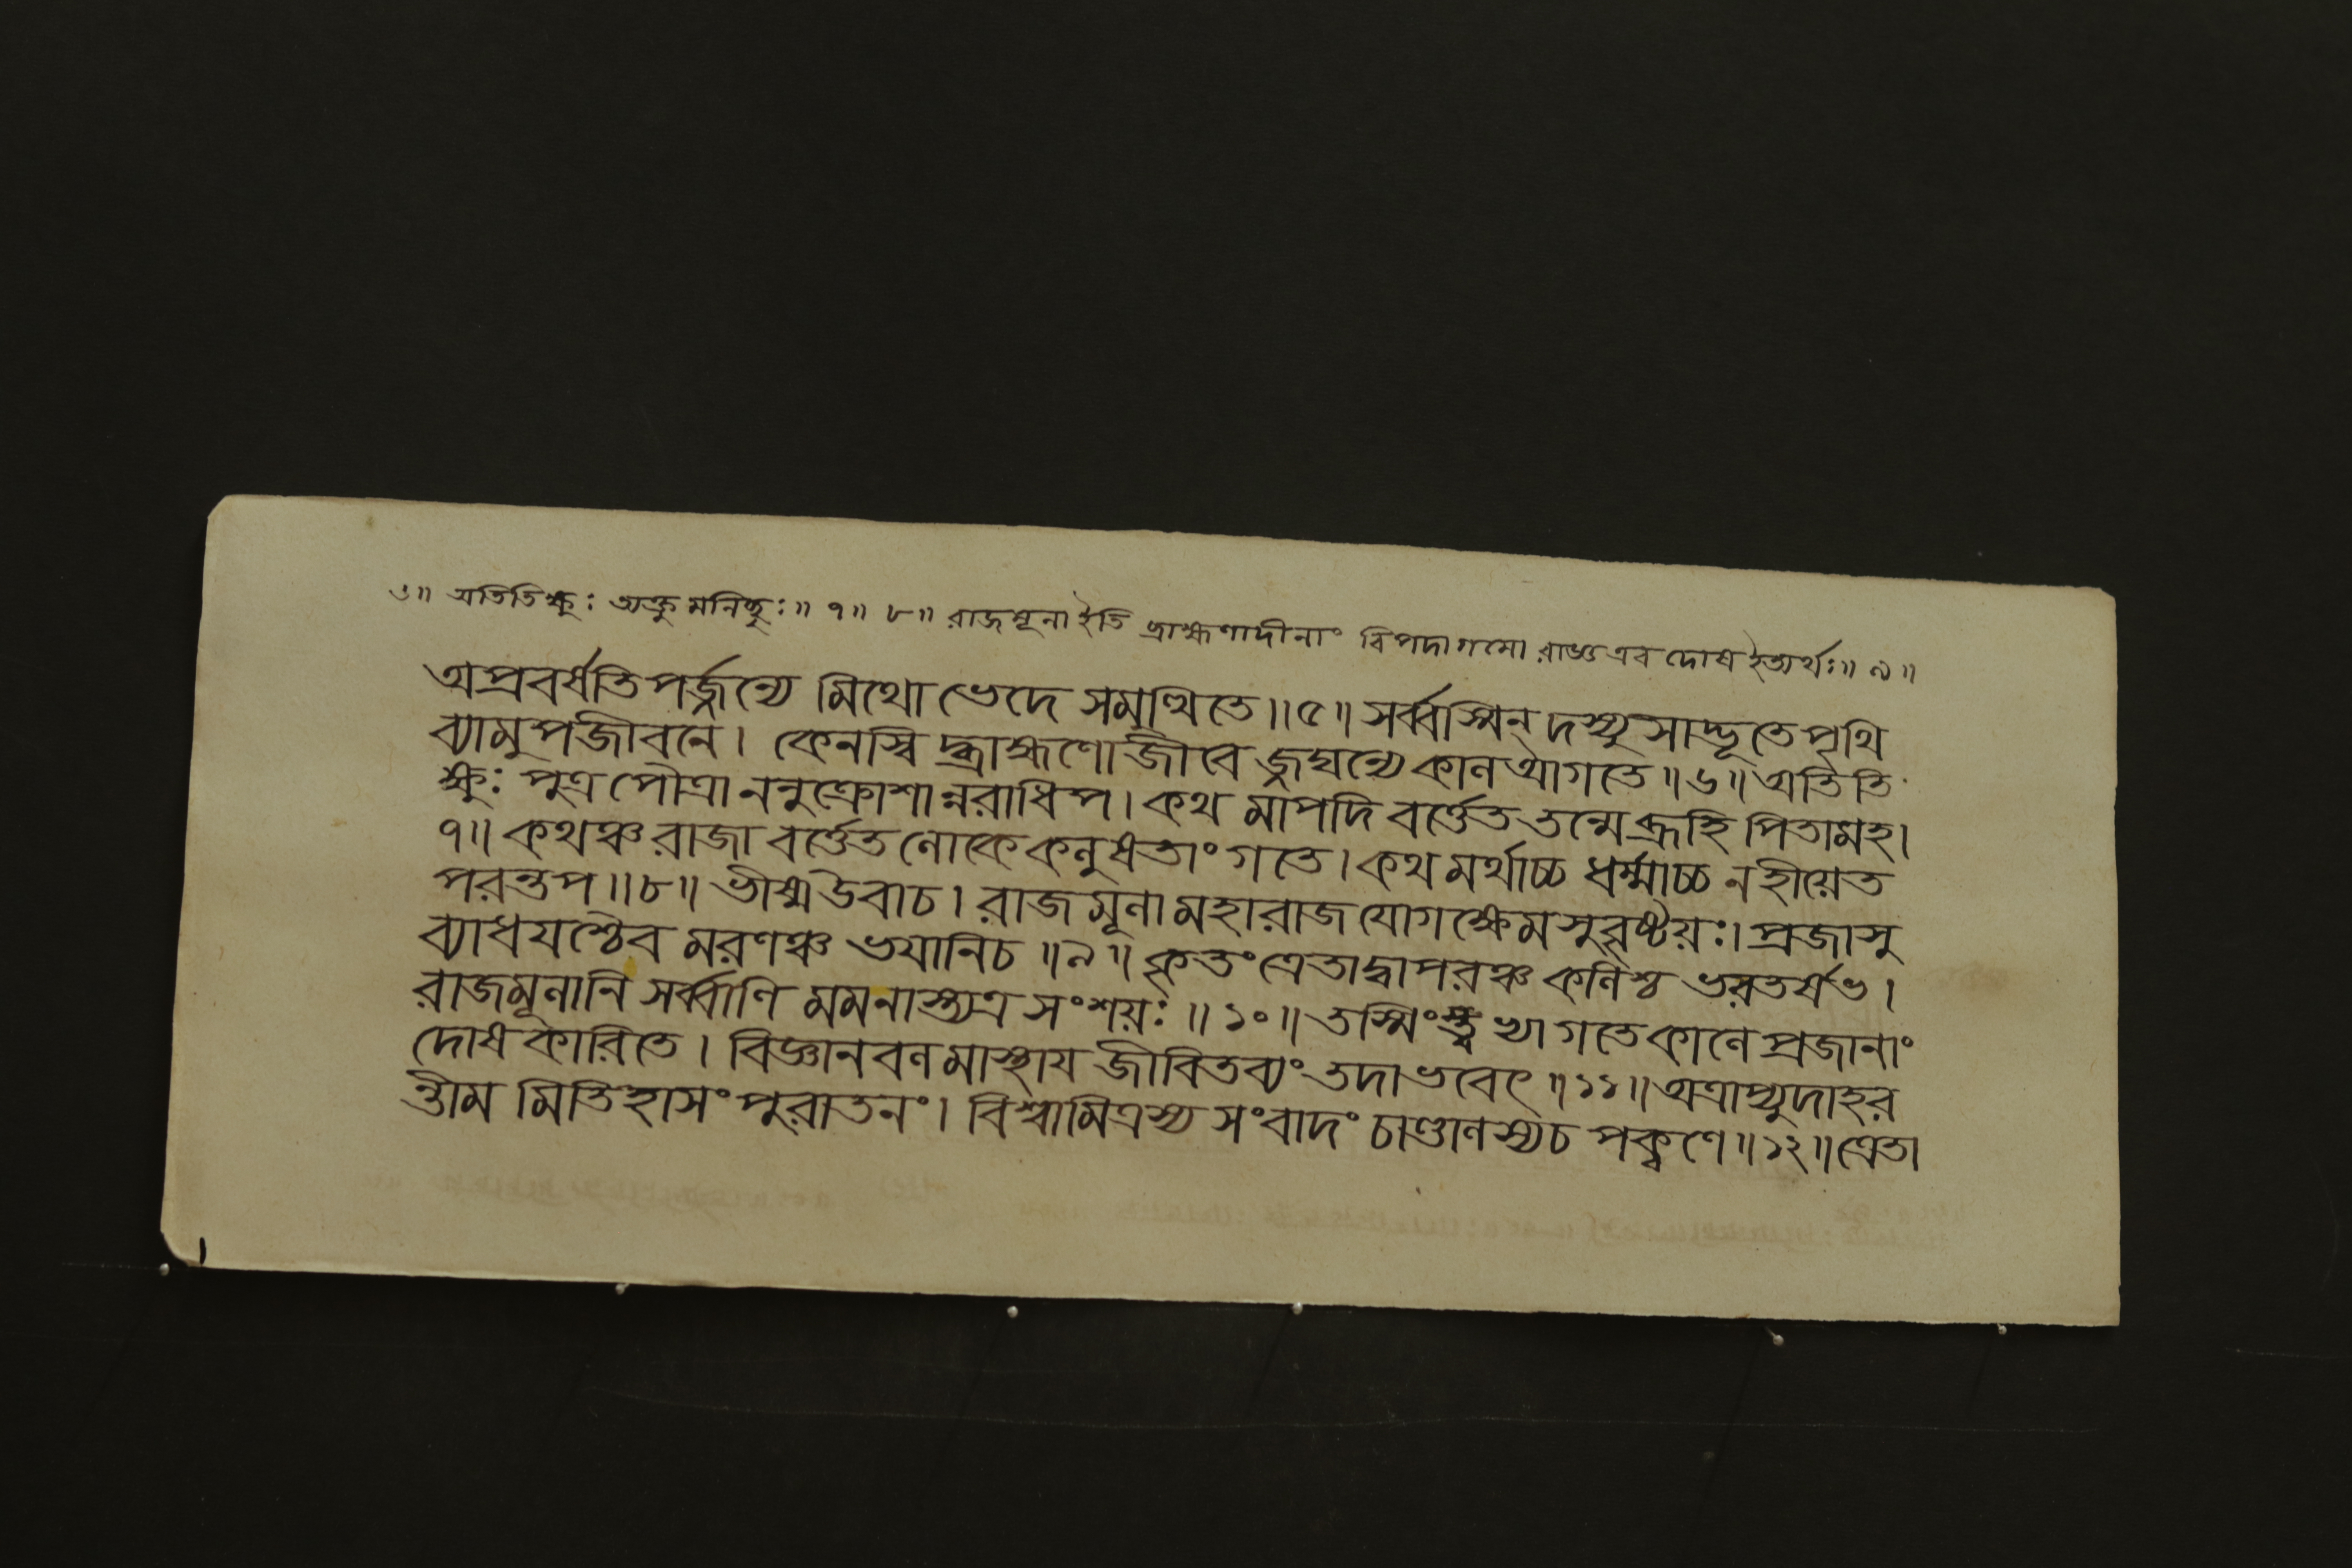 ৬॥ অতিতিক্ষুঃ ত্যক্তুমনিচ্ছুঃ॥ ৭॥ ৮॥ রাজমূলা ইতি ব্রাহ্মণাদীনাং বিপদাগমো রাজ্ঞ এব দোষ ইত্যর্থঃ॥ ৯॥
অপ্রবর্ষতি পর্জ্জন্যে মিথো ভেদে সমুত্থিতে॥ ৫॥ সর্ব্বস্মিন্ দস্যুসাদ্ভূতে পৃথি
ব্যামুপজীবনে। কেনস্বিদ্ব্রাহ্মণো জীবেজ্জঘন্যে কাল আগতে॥ ৬॥ অতিতি
ক্ষুঃ পুত্রপৌত্রাননুক্রোশান্নরাধিপ। কথমাপদি বর্ত্তেত তন্মে ব্রূহি পিতামহ।
৭॥ কথঞ্চ রাজা বর্ত্তেত লোকে কলুষতাং গতে। কথমর্থাচ্চ ধর্ম্মাচ্চ ন হীয়েত
পরন্তপ॥ ৮॥ ভীষ্ম উবাচ। রাজমূলা মহারাজ যোগক্ষেমসুবৃষ্টয়ঃ। প্রজাসু
ব্যাধযশ্চৈব মরণঞ্চ ভযানি চ॥ ৯॥ কৃতং ত্রেতা দ্বাপরঞ্চ কলিশ্চ ভরতর্ষভ।
রাজমূলানি সর্ব্বাণি মম নাস্ত্যত্র সংশয়ঃ॥ ১০॥ তস্মিংস্ত্বভ্যাগতে কালে প্রজানাং
দোষকারিতে। বিজ্ঞানবলমাস্থায জীবিতব্যং তদা ভবেৎ॥ ১১॥ অত্রাপ্যুদাহর
ন্তীমমিতিহাসং পুরাতনং। বিশ্বামিত্রস্য সংবাদং চাণ্ডালস্য চ পক্কণে॥ ১২॥ ত্রেতা